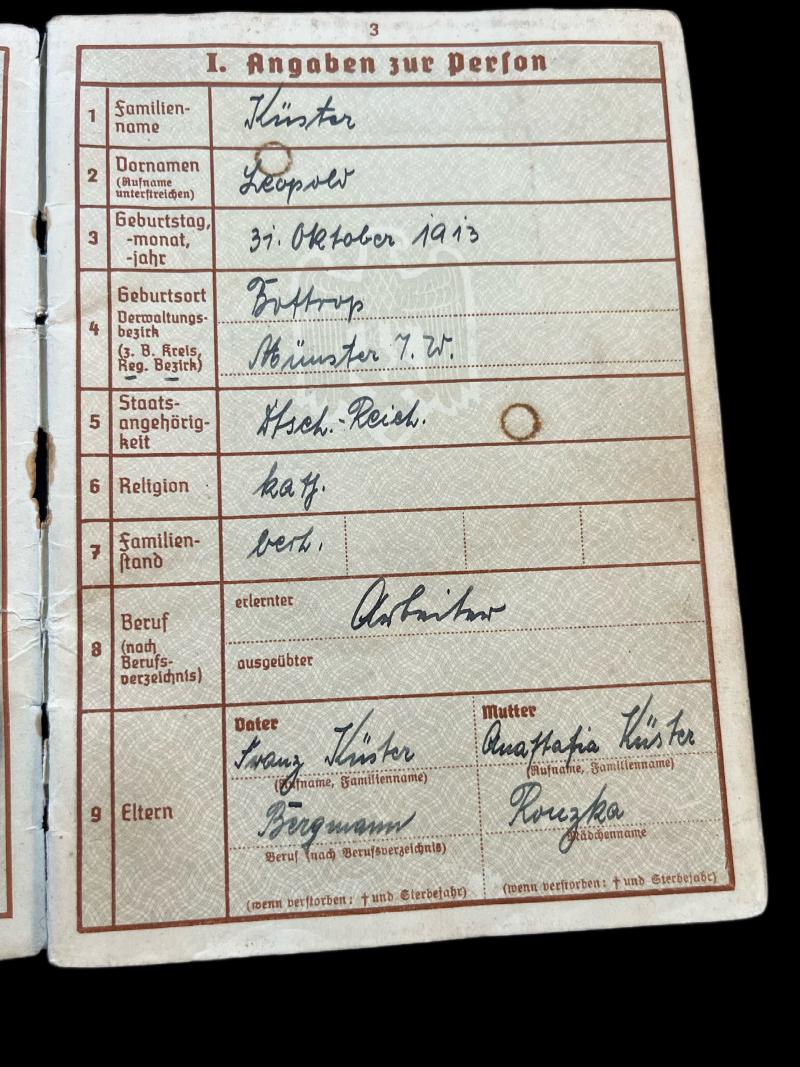 3
I. Angaben zur Person
1 Familien-
name
Küster
2 Vornamen
(Rufname
unterstreichen)
Leopold
3 Geburtstag,
-monat,
-jahr
31. Oktober 1913
4 Geburtsort
Verwaltungs-
bezirk
(z. B. Kreis,
Reg. Bezirk)
Bottrop
Münster i. W.
5 Staats-
angehörig-
keit
Dtsch.-Reich.
6 Religion
kath.
7 Familien-
stand
verh.
8 Beruf
(nach
Berufs-
verzeichnis)
erlernter
Arbeiter
ausgeübter
9 Eltern
Vater
Franz Küster
(Rufname, Familienname)
Bergmann
Beruf (nach Berufsverzeichnis)
(wenn verstorben: † und Sterbejahr)
Mutter
Anastasia Küster
(Rufname, Familienname)
Rouzka
Mädchenname
(wenn verstorben: † und Sterbejahr)